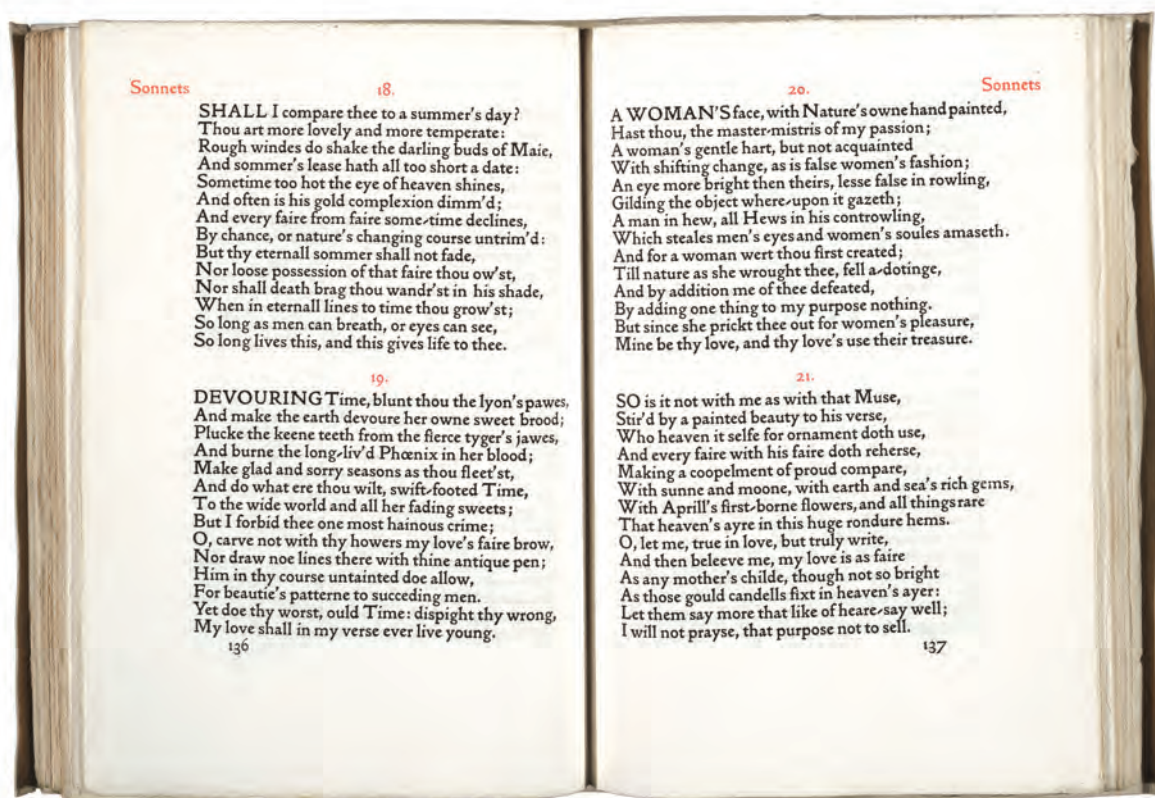 Sonnets
18.
SHALL I compare thee to a summer's day?
Thou art more lovely and more temperate:
Rough windes do shake the darling buds of Maie,
And sommer's lease hath all too short a date:
Sometime too hot the eye of heaven shines,
And often is his gold complexion dimm'd;
And every faire from faire some-time declines,
By chance, or nature's changing course untrim'd:
But thy eternall sommer shall not fade,
Nor loose possession of that faire thou ow'st,
Nor shall death brag thou wandr'st in his shade,
When in eternall lines to time thou grow'st;
So long as men can breath, or eyes can see,
So long lives this, and this gives life to thee.
19.
DEVOURING Time, blunt thou the lyon's pawes,
And make the earth devoure her owne sweet brood;
Plucke the keene teeth from the fierce tyger's jawes,
And burne the long-liv'd Phœnix in her blood;
Make glad and sorry seasons as thou fleet'st,
And do what ere thou wilt, swift-footed Time,
To the wide world and all her fading sweets;
But I forbid thee one most hainous crime;
O, carve not with thy howers my love's faire brow,
Nor draw noe lines there with thine antique pen;
Him in thy course untainted doe allow,
For beautie's patterne to succeding men.
Yet doe thy worst, ould Time: dispight thy wrong,
My love shall in my verse ever live young.
136
Sonnets
20.
A WOMAN'S face, with Nature's owne hand painted,
Hast thou, the master-mistris of my passion;
A woman's gentle hart, but not acquainted
With shifting change, as is false women's fashion;
An eye more bright then theirs, lesse false in rowling,
Gilding the object where-upon it gazeth;
A man in hew, all Hews in his controwling,
Which steales men's eyes and women's soules amaseth.
And for a woman wert thou first created;
Till nature as she wrought thee, fell a-dotinge,
And by addition me of thee defeated,
By adding one thing to my purpose nothing.
But since she prickt thee out for women's pleasure,
Mine be thy love, and thy love's use their treasure.
21.
SO is it not with me as with that Muse,
Stir'd by a painted beauty to his verse,
Who heaven it selfe for ornament doth use,
And every faire with his faire doth reherse,
Making a coopelment of proud compare,
With sunne and moone, with earth and sea's rich gems,
With Aprill's first-borne flowers, and all things rare
That heaven's ayre in this huge rondure hems.
O, let me, true in love, but truly write,
And then beleeve me, my love is as faire
As any mother's childe, though not so bright
As those gould candells fixt in heaven's ayer:
Let them say more that like of heare-say well;
I will not prayse, that purpose not to sell.
137